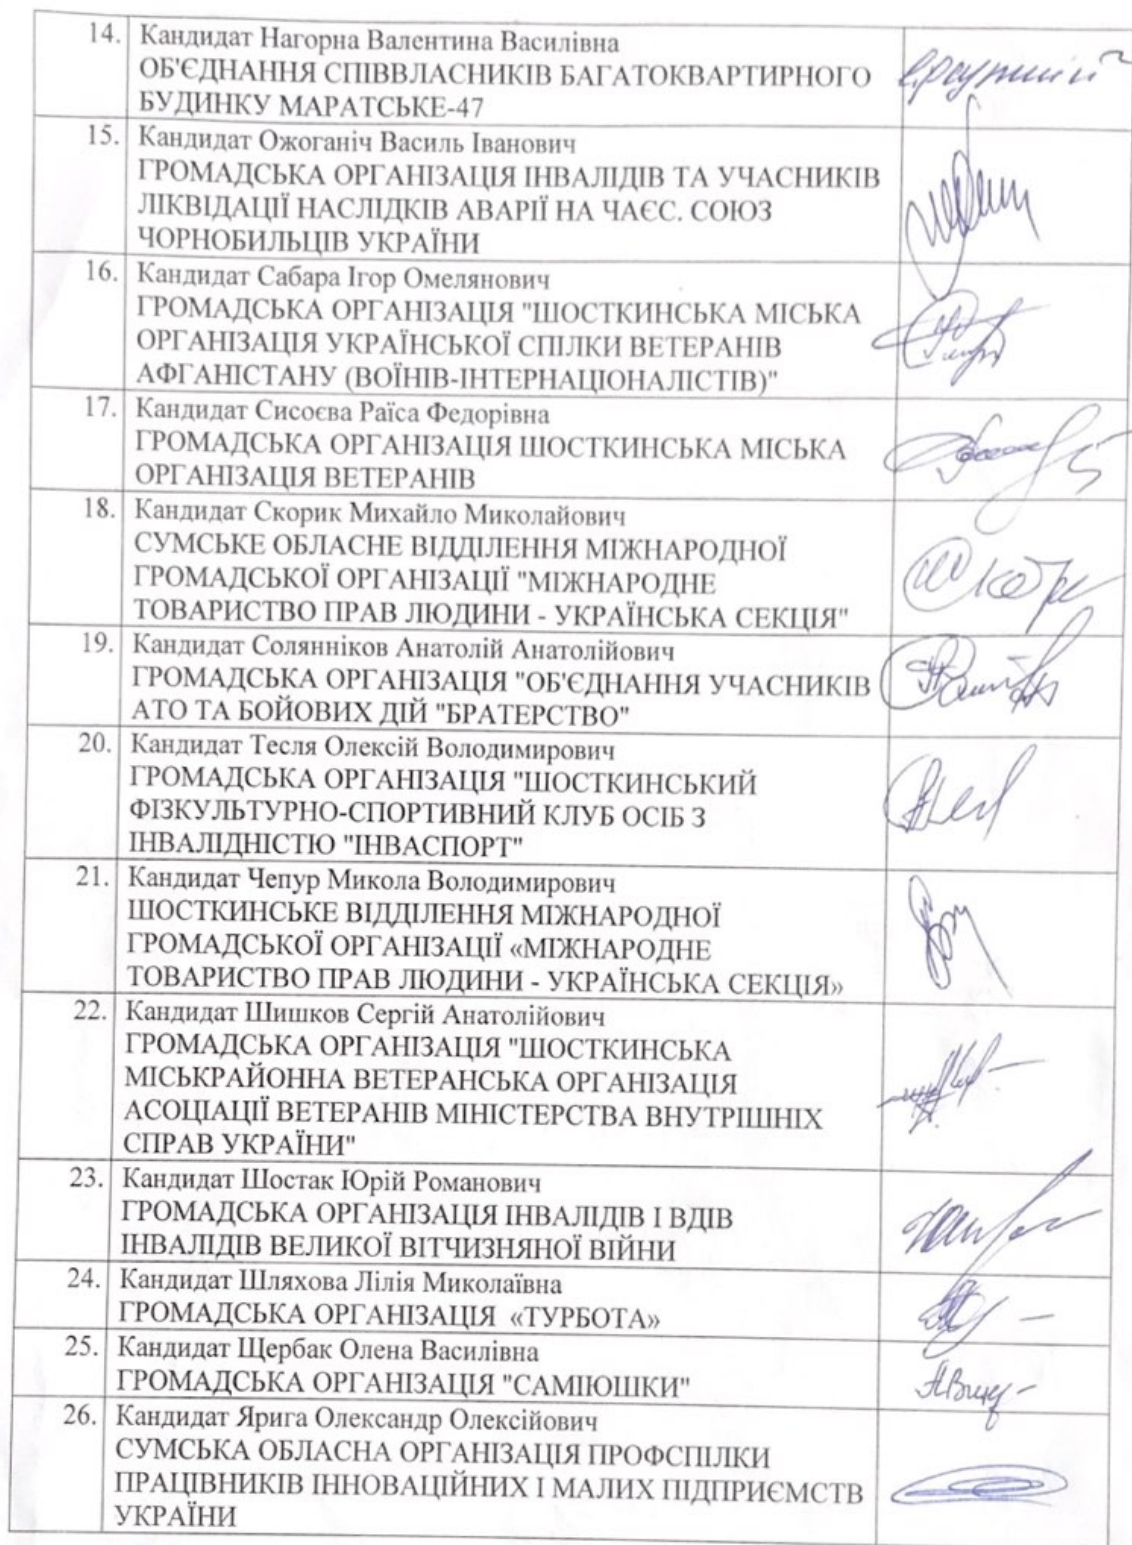 14. Кандидат Нагорна Валентина Василівна
ОБ'ЄДНАННЯ СПІВВЛАСНИКІВ БАГАТОКВАРТИРНОГО
БУДИНКУ МАРАТСЬКЕ-47
15. Кандидат Ожоганіч Василь Іванович
ГРОМАДСЬКА ОРГАНІЗАЦІЯ ІНВАЛІДІВ ТА УЧАСНИКІВ
ЛІКВІДАЦІЇ НАСЛІДКІВ АВАРІЇ НА ЧАЄС. СОЮЗ
ЧОРНОБИЛЬЦІВ УКРАЇНИ
16. Кандидат Сабара Ігор Омелянович
ГРОМАДСЬКА ОРГАНІЗАЦІЯ "ШОСТКИНСЬКА МІСЬКА
ОРГАНІЗАЦІЯ УКРАЇНСЬКОЇ СПІЛКИ ВЕТЕРАНІВ
АФГАНІСТАНУ (ВОЇНІВ-ІНТЕРНАЦІОНАЛІСТІВ)"
17. Кандидат Сисоєва Раїса Федорівна
ГРОМАДСЬКА ОРГАНІЗАЦІЯ ШОСТКИНСЬКА МІСЬКА
ОРГАНІЗАЦІЯ ВЕТЕРАНІВ
18. Кандидат Скорик Михайло Миколайович
СУМСЬКЕ ОБЛАСНЕ ВІДДІЛЕННЯ МІЖНАРОДНОЇ
ГРОМАДСЬКОЇ ОРГАНІЗАЦІЇ "МІЖНАРОДНЕ
ТОВАРИСТВО ПРАВ ЛЮДИНИ - УКРАЇНСЬКА СЕКЦІЯ"
19. Кандидат Солянніков Анатолій Анатолійович
ГРОМАДСЬКА ОРГАНІЗАЦІЯ "ОБ'ЄДНАННЯ УЧАСНИКІВ
АТО ТА БОЙОВИХ ДІЙ "БРАТЕРСТВО"
20. Кандидат Тесля Олексій Володимирович
ГРОМАДСЬКА ОРГАНІЗАЦІЯ "ШОСТКИНСЬКИЙ
ФІЗКУЛЬТУРНО-СПОРТИВНИЙ КЛУБ ОСІБ З
ІНВАЛІДНІСТЮ "ІНВАСПОРТ"
21. Кандидат Чепур Микола Володимирович
ШОСТКИНСЬКЕ ВІДДІЛЕННЯ МІЖНАРОДНОЇ
ГРОМАДСЬКОЇ ОРГАНІЗАЦІЇ «МІЖНАРОДНЕ
ТОВАРИСТВО ПРАВ ЛЮДИНИ - УКРАЇНСЬКА СЕКЦІЯ»
22. Кандидат Шишков Сергій Анатолійович
ГРОМАДСЬКА ОРГАНІЗАЦІЯ "ШОСТКИНСЬКА
МІСЬКРАЙОННА ВЕТЕРАНСЬКА ОРГАНІЗАЦІЯ
АСОЦІАЦІЇ ВЕТЕРАНІВ МІНІСТЕРСТВА ВНУТРІШНІХ
СПРАВ УКРАЇНИ"
23. Кандидат Шостак Юрій Романович
ГРОМАДСЬКА ОРГАНІЗАЦІЯ ІНВАЛІДІВ І ВДІВ
ІНВАЛІДІВ ВЕЛИКОЇ ВІТЧИЗНЯНОЇ ВІЙНИ
24. Кандидат Шляхова Лілія Миколаївна
ГРОМАДСЬКА ОРГАНІЗАЦІЯ «ТУРБОТА»
25. Кандидат Щербак Олена Василівна
ГРОМАДСЬКА ОРГАНІЗАЦІЯ "САМПЮШКИ"
26. Кандидат Ярига Олександр Олексійович
СУМСЬКА ОБЛАСНА ОРГАНІЗАЦІЯ ПРОФСПІЛКИ
ПРАЦІВНИКІВ ІННОВАЦІЙНИХ І МАЛИХ ПІДПРИЄМСТВ
УКРАЇНИ